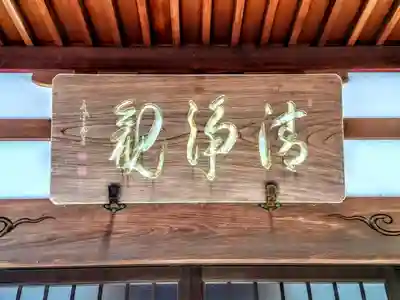 清浄観